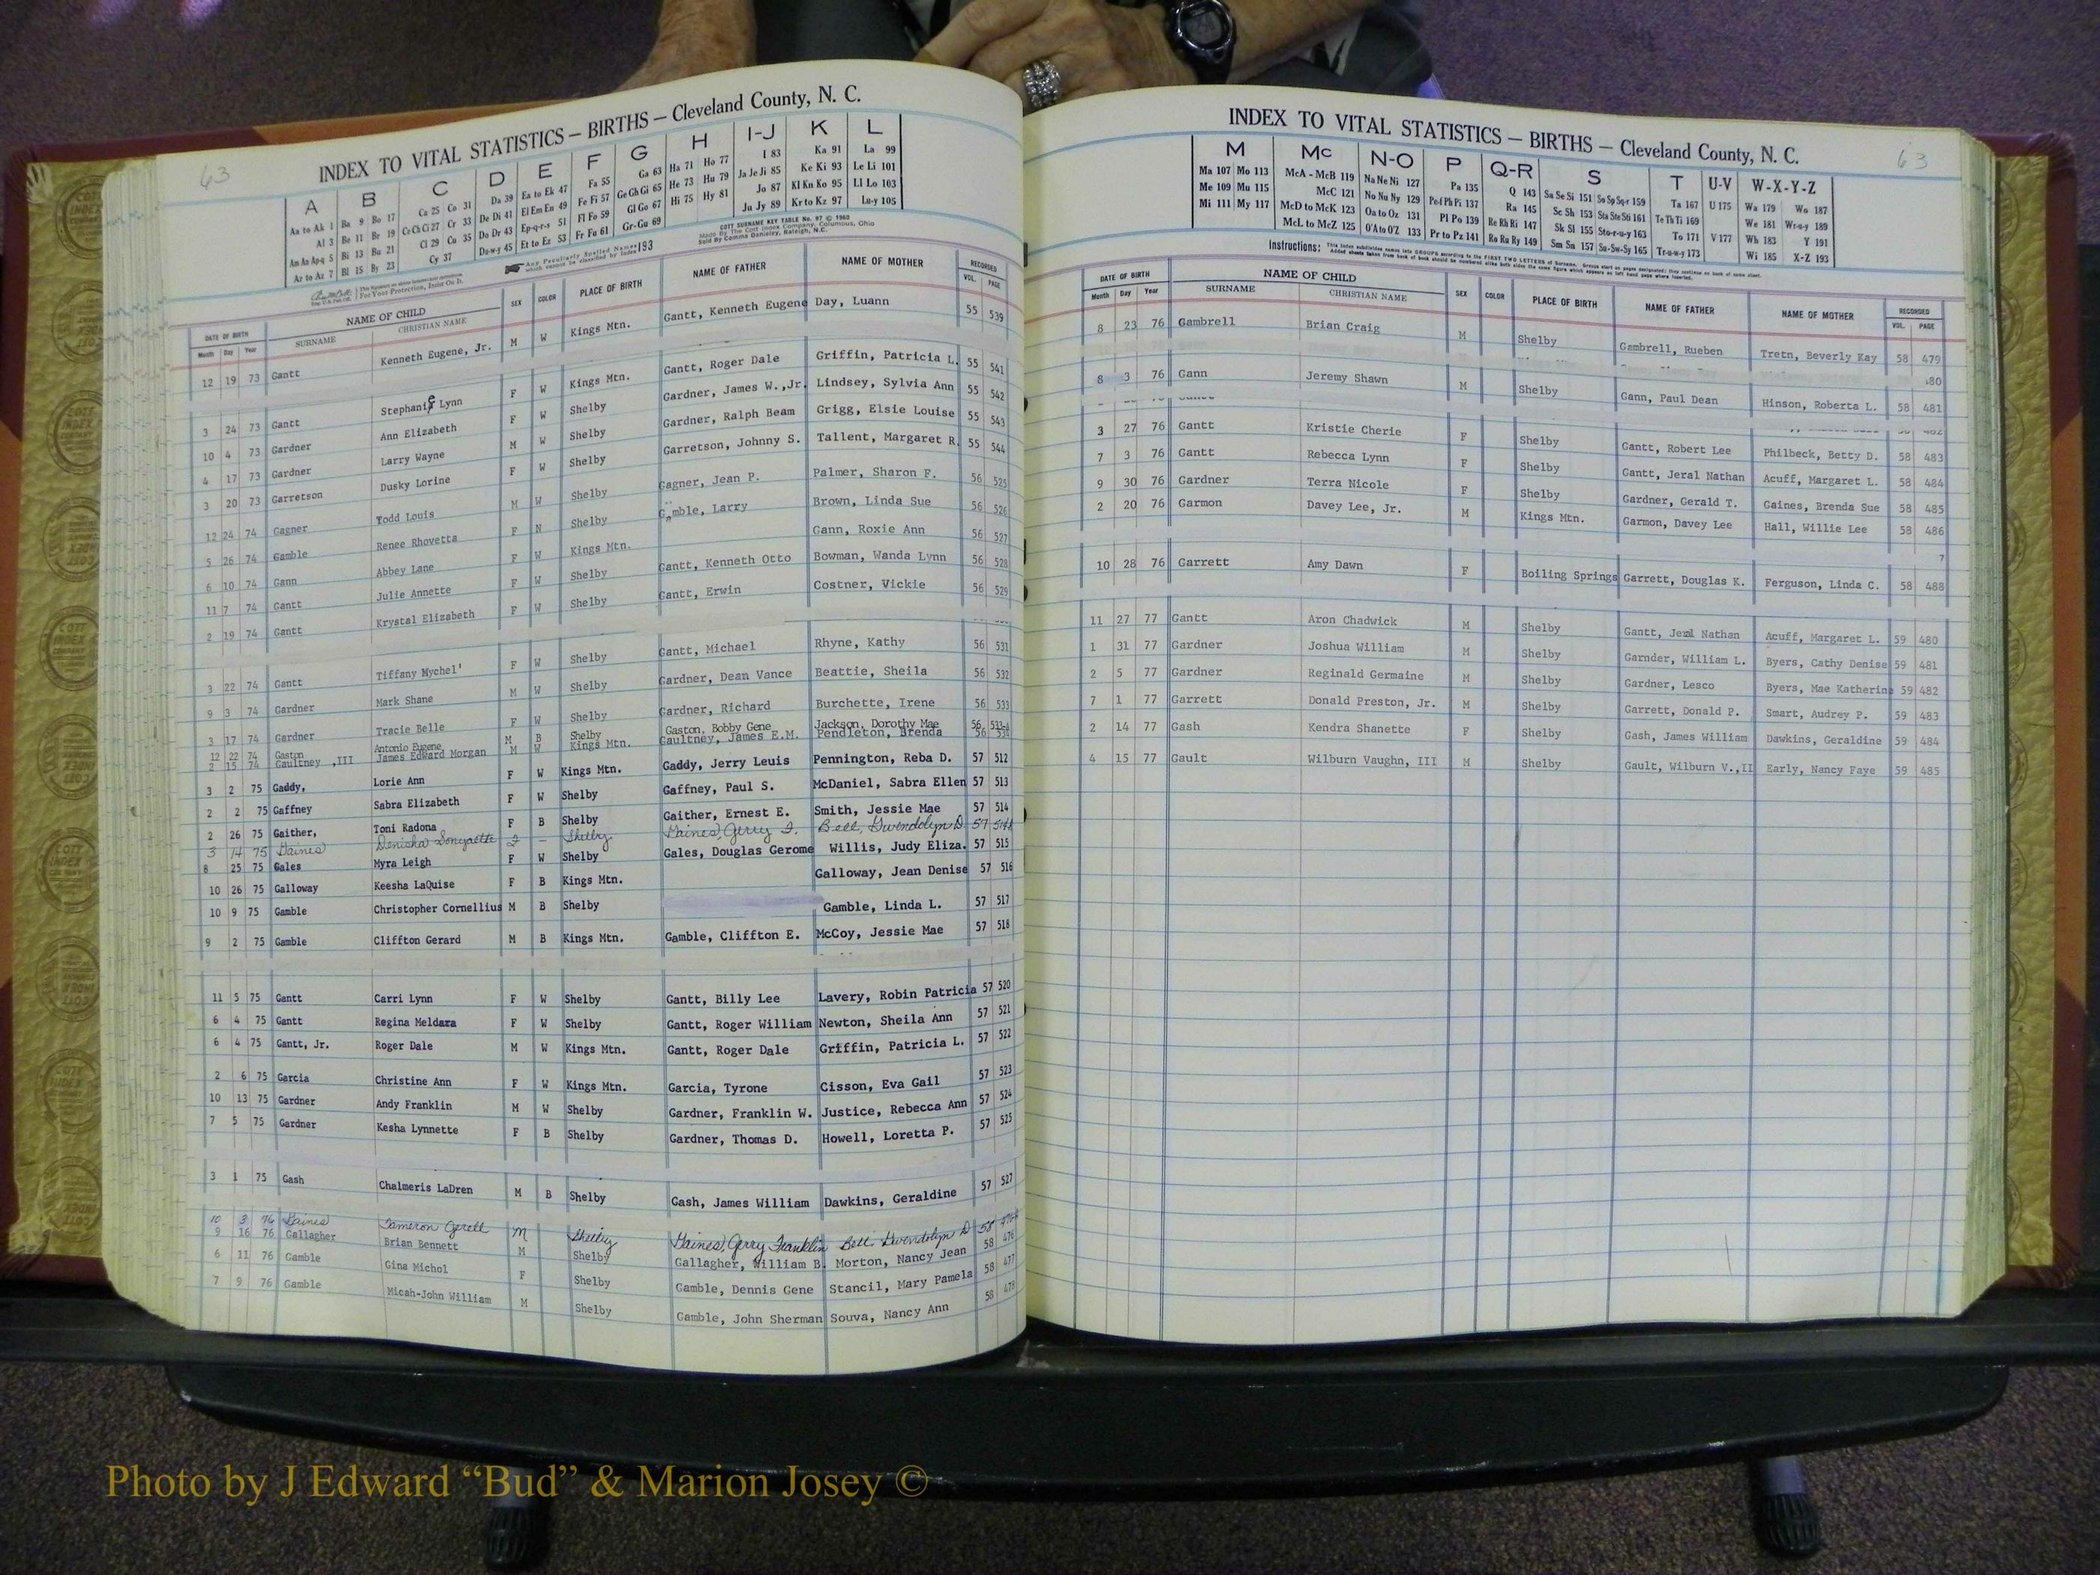 63
INDEX TO VITAL STATISTICS — BIRTHS — Cleveland County, N. C.
A B C D E F G H I-J K L
Aa to Ak 1 Ba 9 Bo 17 Ca 25 Co 31 Da 39 Ea to Ek 47 Fa 55 Ga 63 Ha 71 Ho 77 I 83 Ka 91 La 99
Al 3 Be 11 Br 19 Ce Ch Ci 27 Cr 33 De Di 41 El Em En 49 Fe Fi 57 Ge Gh Gi 65 He 73 Hu 79 Ja Je Ji 85 Ke Ki 93 Le Li 101
Am An Ap-q 5 Bi 13 Bu 21 Cl 29 Cu 35 Do Dr 43 Ep-q-r-s 51 Fl Fo 59 Gl Go 67 Hi 75 Hy 81 Jo 87 Kl Kn Ko 95 Ll Lo 103
Ar to Az 7 Bl 15 By 23 Cy 37 Du-w-y 45 Et to Ez 53 Fr Fu 61 Gr-Gu 69 Ju Jy 89 Kr to Kz 97 Lu-y 105
COTT SURNAME KEY TABLE No. 97 © 1960
Made By The Cott Index Company, Columbus, Ohio
Sold By Comma Danieley, Raleigh, N.C.
Any Peculiarly Spelled Names 193
which cannot be classified by Index
For Your Protection, Insist On It.
DATE OF BIRTH NAME OF CHILD SEX COLOR PLACE OF BIRTH NAME OF FATHER NAME OF MOTHER RECORDED
Month Day Year SURNAME CHRISTIAN NAME VOL. PAGE
12 19 73 Gantt Kenneth Eugene, Jr. M W Kings Mtn. Gantt, Kenneth Eugene Day, Luann 55 539
3 24 73 Gantt Stephanie Lynn F W Kings Mtn. Gantt, Roger Dale Griffin, Patricia L. 55 541
10 4 73 Gardner Ann Elizabeth F W Shelby Gardner, James W.,Jr. Lindsey, Sylvia Ann 55 542
4 17 73 Gardner Larry Wayne M W Shelby Gardner, Ralph Beam Grigg, Elsie Louise 55 543
3 20 73 Garretson Dusky Lorine F W Shelby Garretson, Johnny S. Tallent, Margaret R. 55 544
12 24 74 Gagner Todd Louis M W Shelby Gagner, Jean P. Palmer, Sharon F. 56 525
5 26 74 Gamble Renee Rhovetta F N Shelby Gamble, Larry Brown, Linda Sue 56 526
6 10 74 Gann Abbey Lane F W Kings Mtn. Gann, Roxie Ann 56 527
11 7 74 Gantt Julie Annette F W Shelby Gantt, Kenneth Otto Bowman, Wanda Lynn 56 528
2 19 74 Gantt Krystal Elizabeth F W Shelby Gantt, Erwin Costner, Vickie 56 529
3 22 74 Gantt Tiffany Mychel' F W Shelby Gantt, Michael Rhyne, Kathy 56 531
9 3 74 Gardner Mark Shane M W Shelby Gardner, Dean Vance Beattie, Sheila 56 532
3 17 74 Gardner Tracie Belle F W Shelby Gardner, Richard Burchette, Irene 56 533
12 22 74 Gaston Antonio Eugene M B Shelby Gaston, Bobby Gene Jackson, Dorothy Mae 56 533-A
2 15 74 Gaultney ,III James Edward Morgan M W Kings Mtn. Gaultney, James E.M. Pendleton, Brenda 56 534
3 2 75 Gaddy, Lorie Ann F W Kings Mtn. Gaddy, Jerry Leuis Pennington, Reba D. 57 512
2 2 75 Gaffney Sabra Elizabeth F W Shelby Gaffney, Paul S. McDaniel, Sabra Ellen 57 513
2 26 75 Gaither, Toni Radona F B Shelby Gaither, Ernest E. Smith, Jessie Mae 57 514
3 14 75 Gaines Denisha Sonyaette F – Shelby Gaines, Gerry F. Bell, Gwendolyn D. 57 514A
8 25 75 Gales Myra Leigh F W Shelby Gales, Douglas Gerome Willis, Judy Eliza. 57 515
10 26 75 Galloway Keesha LaQuise F B Kings Mtn. Galloway, Jean Denise 57 516
10 9 75 Gamble Christopher Cornellius M B Shelby Gamble, Linda L. 57 517
9 2 75 Gamble Cliffton Gerard M B Kings Mtn. Gamble, Cliffton E. McCoy, Jessie Mae 57 518
11 5 75 Gantt Carri Lynn F W Shelby Gantt, Billy Lee Lavery, Robin Patricia 57 520
6 4 75 Gantt Regina Meldara F W Shelby Gantt, Roger William Newton, Sheila Ann 57 521
6 4 75 Gantt, Jr. Roger Dale M W Kings Mtn. Gantt, Roger Dale Griffin, Patricia L. 57 522
2 6 75 Garcia Christine Ann F W Kings Mtn. Garcia, Tyrone Cisson, Eva Gail 57 523
10 13 75 Gardner Andy Franklin M W Shelby Gardner, Franklin W. Justice, Rebecca Ann 57 524
7 5 75 Gardner Kesha Lynnette F B Shelby Gardner, Thomas D. Howell, Loretta P. 57 525
3 1 75 Gash Chalmeris LaDren M B Shelby Gash, James William Dawkins, Geraldine 57 527
10 3 76 Gaines Tameron Gerell M Shelby Gaines, Gerry Franklin Bell, Gwendolyn D 58
9 16 76 Gallagher Brian Bennett M Shelby Gallagher, William B. Morton, Nancy Jean 58 476
6 11 76 Gamble Gina Michol F Shelby Gamble, Dennis Gene Stancil, Mary Pamela 58 477
7 9 76 Gamble Micah-John William M Shelby Gamble, John Sherman Souva, Nancy Ann 58 478
INDEX TO VITAL STATISTICS — BIRTHS — Cleveland County, N. C.
63
M Mc N-O P Q-R S T U-V W-X-Y-Z
Ma 107 Mo 113 McA - McB 119 Na Ne Ni 127 Pa 135 Q 143 Sa Se Si 151 So Sp Sq-r 159 Ta 167 U 175 Wa 179 Wo 187
Me 109 Mu 115 McC 121 No Nu Ny 129 Pe-f Ph Pi 137 Ra 145 Sc Sh 153 Sta Ste Sti 161 Te Th Ti 169 We 181 Wr-u-y 189
Mi 111 My 117 McD to McK 123 Oa to Oz 131 Pl Po 139 Re Rh Ri 147 Sk Sl 155 Sto-r-u-y 163 To 171 V 177 Wh 183 Y 191
McL to McZ 125 O'A to O'Z 133 Pr to Pz 141 Ro Ru Ry 149 Sm Sn 157 Su-Sw-Sy 165 Tr-u-w-y 173 Wi 185 X-Z 193
Instructions: This index subdivides names into GROUPS according to the FIRST TWO LETTERS of Surname. Groups start on pages designated; they continue on back of same sheet.
Added sheets taken from back of book should be numbered alike both sides the same figure which appears on left hand page where inserted.
DATE OF BIRTH NAME OF CHILD SEX COLOR PLACE OF BIRTH NAME OF FATHER NAME OF MOTHER RECORDED
Month Day Year SURNAME CHRISTIAN NAME VOL. PAGE
8 23 76 Gambrell Brian Craig M Shelby Gambrell, Rueben Tretn, Beverly Kay 58 479
8 3 76 Gann Jeremy Shawn M Shelby Gann, Paul Dean Hinson, Roberta L. 58 481
3 27 76 Gantt Kristie Cherie F Shelby Gantt, Robert Lee Philbeck, Betty D. 58 483
7 3 76 Gantt Rebecca Lynn F Shelby Gantt, Jeral Nathan Acuff, Margaret L. 58 484
9 30 76 Gardner Terra Nicole F Shelby Gardner, Gerald T. Gaines, Brenda Sue 58 485
2 20 76 Garmon Davey Lee, Jr. M Kings Mtn. Garmon, Davey Lee Hall, Willie Lee 58 486
10 28 76 Garrett Amy Dawn F Boiling Springs Garrett, Douglas K. Ferguson, Linda C. 58 488
11 27 77 Gantt Aron Chadwick M Shelby Gantt, Jeral Nathan Acuff, Margaret L. 59 480
1 31 77 Gardner Joshua William M Shelby Garnder, William L. Byers, Cathy Denise 59 481
2 5 77 Gardner Reginald Germaine M Shelby Gardner, Lesco Byers, Mae Katherine 59 482
7 1 77 Garrett Donald Preston, Jr. M Shelby Garrett, Donald P. Smart, Audrey P. 59 483
2 14 77 Gash Kendra Shanette F Shelby Gash, James William Dawkins, Geraldine 59 484
4 15 77 Gault Wilburn Vaughn, III M Shelby Gault, Wilburn V.,II Early, Nancy Faye 59 485
Photo by J Edward “Bud” & Marion Josey ©